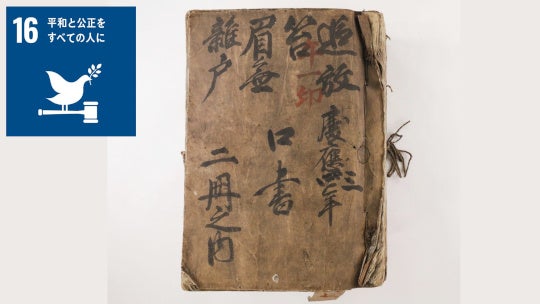 16
平和と公正を
すべての人に
追放
慶應三年
笞
口書
眉無
雜戸
二冊之内